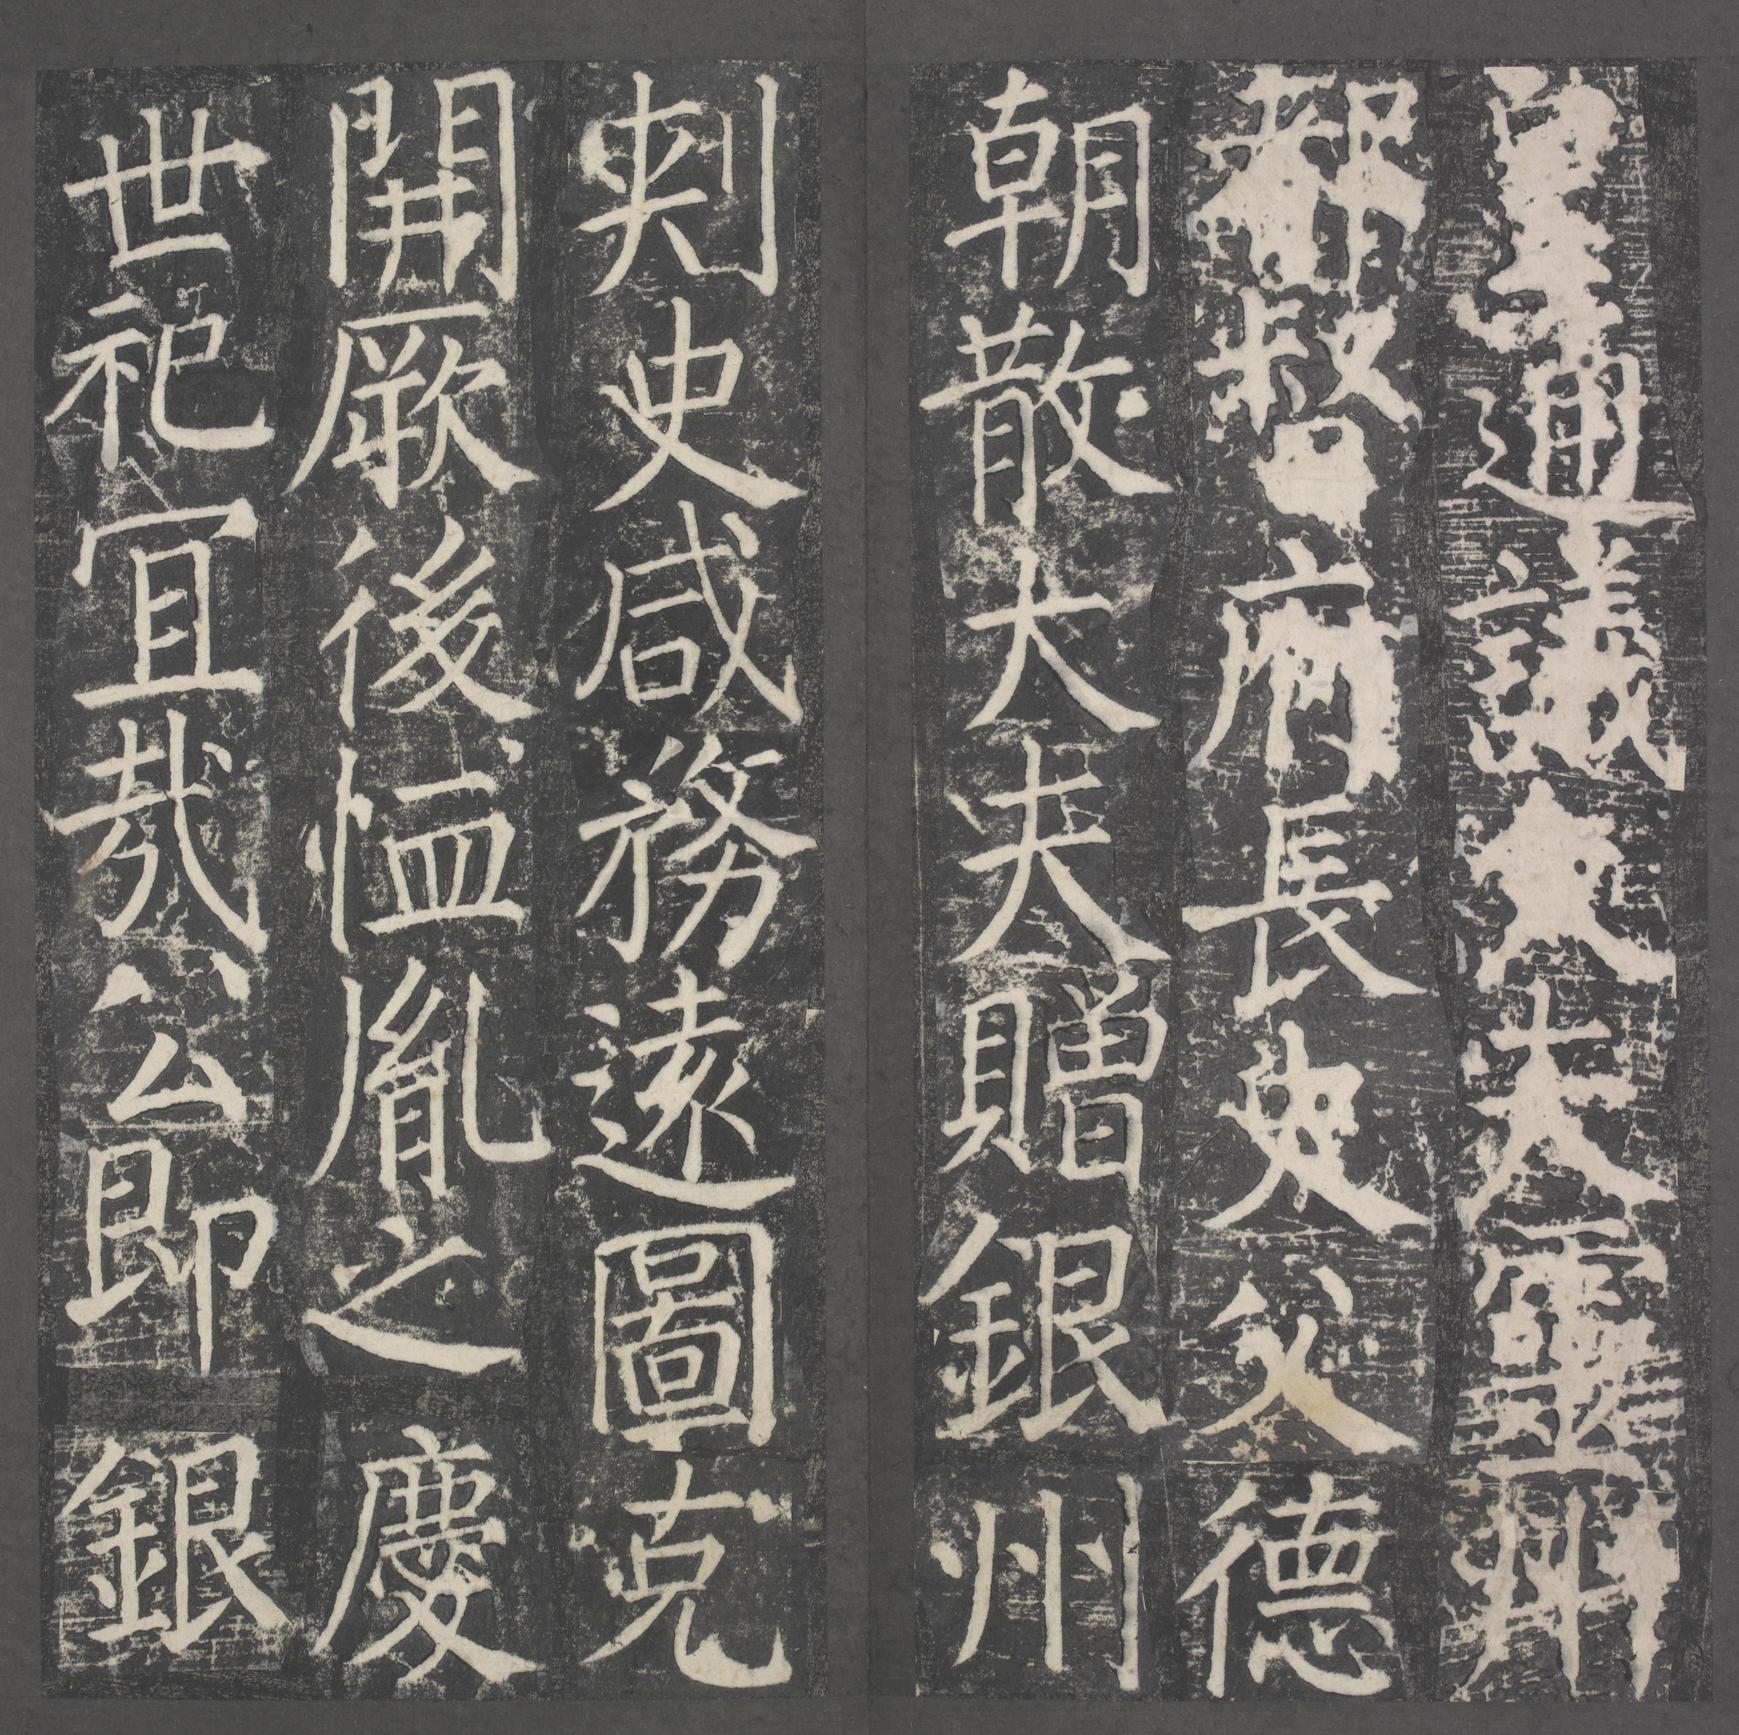 皇通議大夫靈州
都督府長史父德
朝散大夫贈銀州
刺史咸務遠圖克
開厥後恤胤之慶
世祀宜哉公即銀